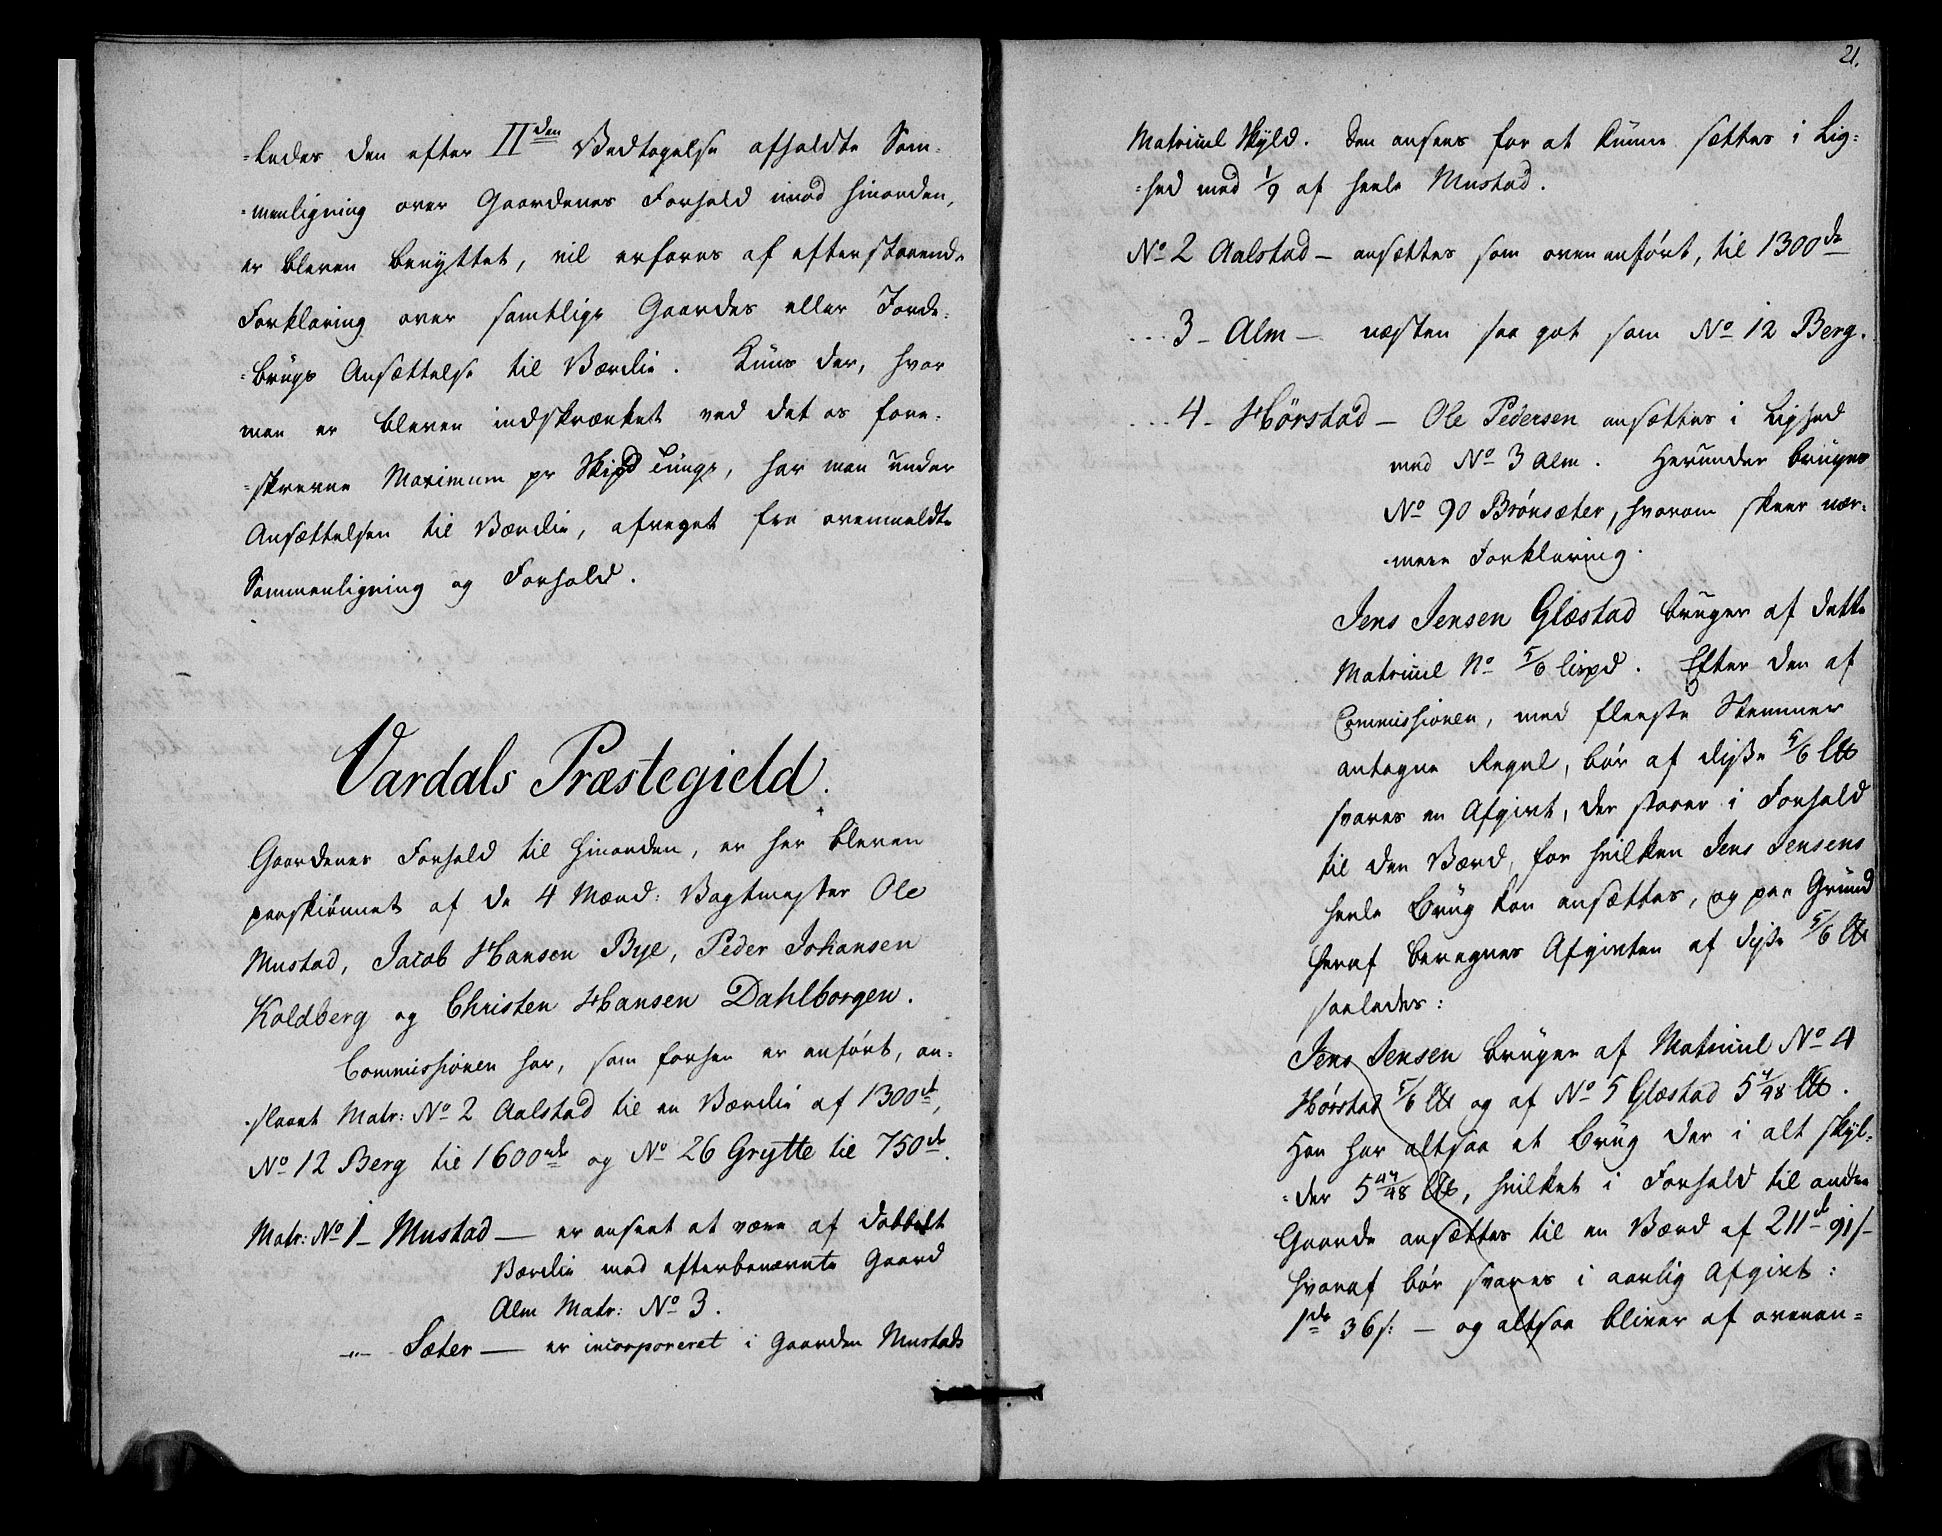 =ledes den efter II den Vedtagelse afholdte Sam-
=menligning over Gaardenes Forhold imod hinanden,
er bleven benyttet, vil erfares af efterstaaende
Forklaring over samtlige Gaardes eller Jorde-
=brugs Ansættelse til Værdie. Kuns der, hvor
man er bleven indskrænket ved det os fore-
=skrevne Maximum pr Skipd Tunge, har man under
Ansættelsen til Værdie, afveget fra ovenmeldte
Sammenligning og Forhold.
Vardals Præstegield.
Gaardenes Forhold til hinanden, er her bleven
paaskiønnet af de 4 Mænd: Vagtmester Ole
Mustad, Jacob Hansen Bye, Peder Johansen
Koldberg og Christen Hansen Dahlborgen.
Commissionen har, som forhen er anført, an-
slaaet Matr: No 2 Aalstad til en Værdie af 1300 rd,
No 12 Berg til 1600 rd og No 26 Grytte til 750 rd.
Matr: No 1 - Mustad - er anseet at være af dobbelt
Værdie mod efterbenævnte Gaard
Alm Matr: No 3.
-"- Sæter - er incorporeret i Gaarden Mustads
21.
Matricul Skyld. Den ansees for at kunne sættes i Lig=
=hed med 1/9 af heele Mustad.
No 2 Aalstad - ansættes som ovenanført, til 1300 rd
... 3 - Alm - næsten saa got som No 12 Berg.
... 4 - Hørstad - Ole Pedersen ansættes i Lighed
med No 3 Alm. Herunder bruges
No 90 Brønsæter, hvorom skeer nær-
=mere Forklaring.
Jens Jensen Glæstad bruger af dette
Matricul No 5/6 lispd. Efter den af
Commissionen, med fleeste Stemmer
antagne Regel, bør af disse 5/6 lb
svares en Afgivt, der staaer i Forhold
til den Værd, for hvilken Jens Jensens
heele Brug kan ansættes, og paa Grund
heraf beregnes Afgivten af disse 5/6 lb
saaledes:
Jens Jensen bruger af Matricul No 4
Hørstad 5/6 lb og af No 5 Glæstad 5 4/48 lb.
Han har altsaa et Brug der i alt skyl-
=der 5 44/48 lb, hvilket i Forhold til andre
Gaarde ansættes til en Værd af 211 rd 91 s
hvoraf bør svares i aarlig Afgivt:
1 rd 36 s: - og altsaa bliver af ovenan=